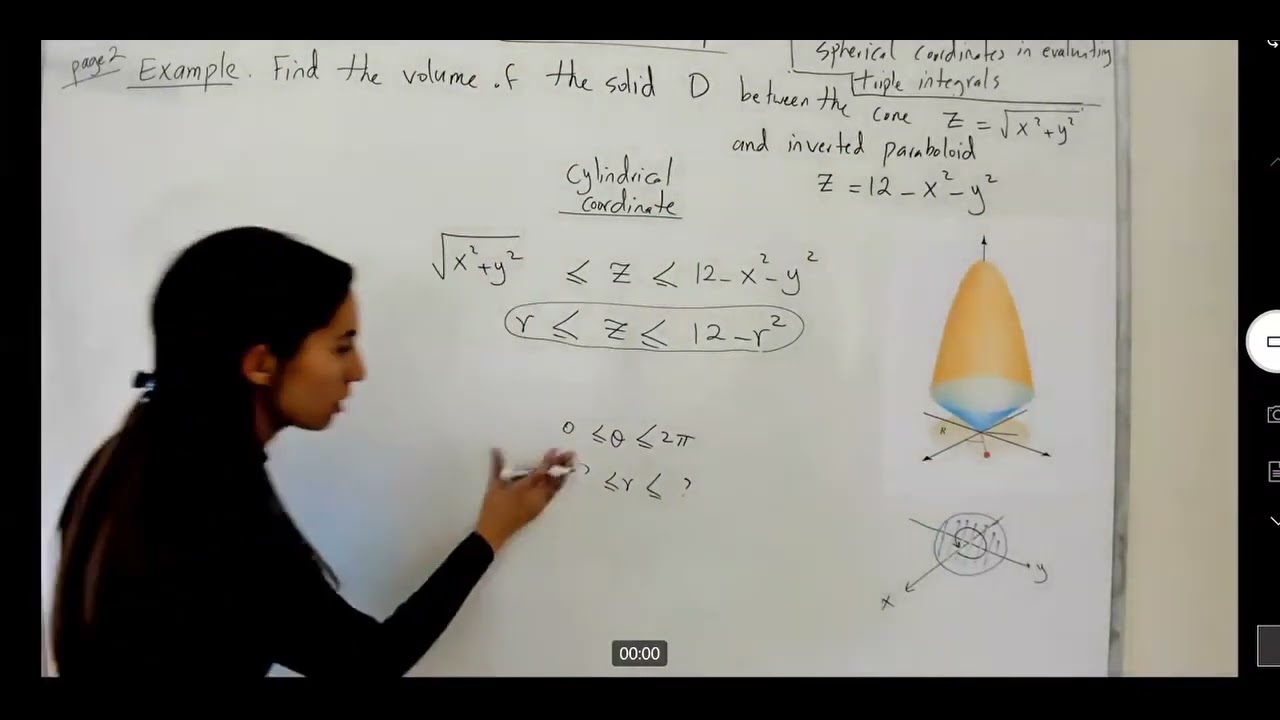 Spherical coordinates in evaluating
triple integrals
page 2 Example. Find the volume of the solid D between the cone z = √x²+y²
and inverted paraboloid
z = 12 - x² - y²
Cylindrical
Coordinate
√x²+y² ≤ z ≤ 12 - x² - y²
r ≤ z ≤ 12 - r²
0 ≤ θ ≤ 2π
≤ r ≤ ?
R
y
x
00:00